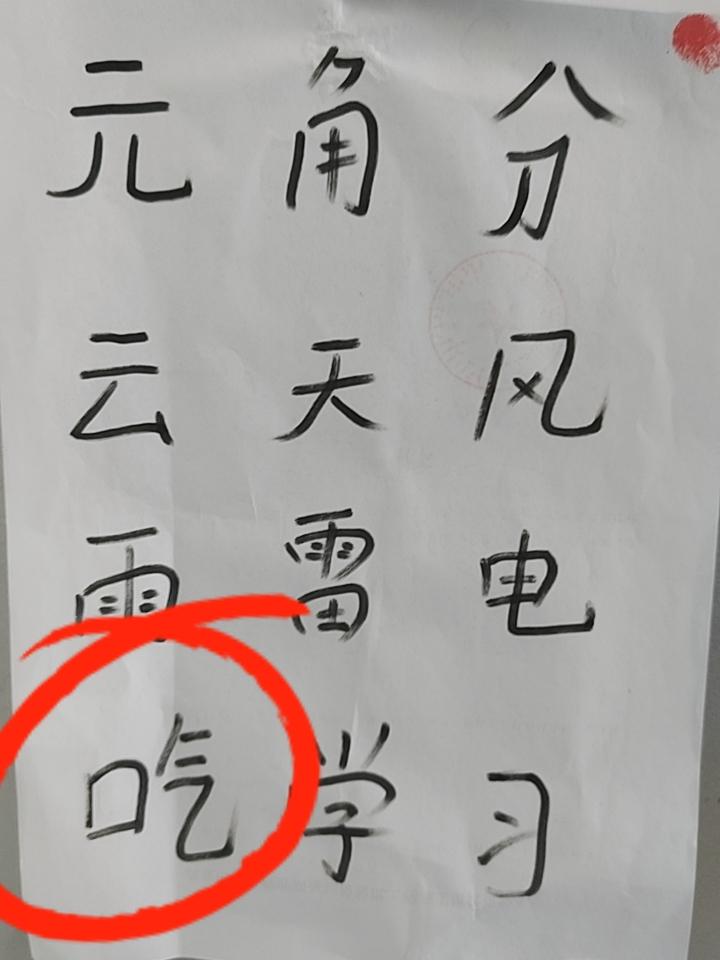 元 角 分
云 天 风
雨 雷 电
吃 学 习